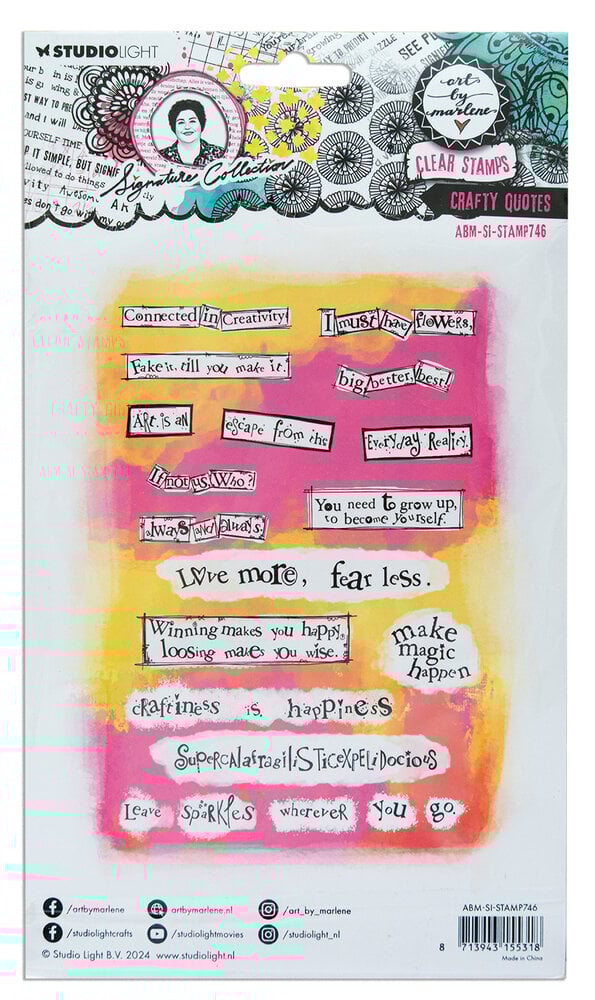 STUDIOLIGHT
art
by
marlene
Signature Collection
CLEAR STAMPS
CRAFTY QUOTES
ABM-SI-STAMP746
Connected in Creativity!
I must have flowers,
Fake it, till you make it.
big, better, best!
Art is an
escape from the
Everyday Reality.
If not us, Who?
You need to grow up,
to become yourself.
always and always.
Love more, fear less.
Winning makes you happy,
loosing makes you wise.
make
magic
happen
craftiness is happiness
SuperCalafragiliSTiCexpeliDocious
Leave sparkles wherever you go.
/artbymarlene
artbymarlene.nl
/art_by_marlene
/studiolightcrafts
/studiolightmovies
/studiolight_nl
© Studio Light B.V. 2024 www.studiolight.nl
ABM-SI-STAMP746
8 713943 155318
Made in China